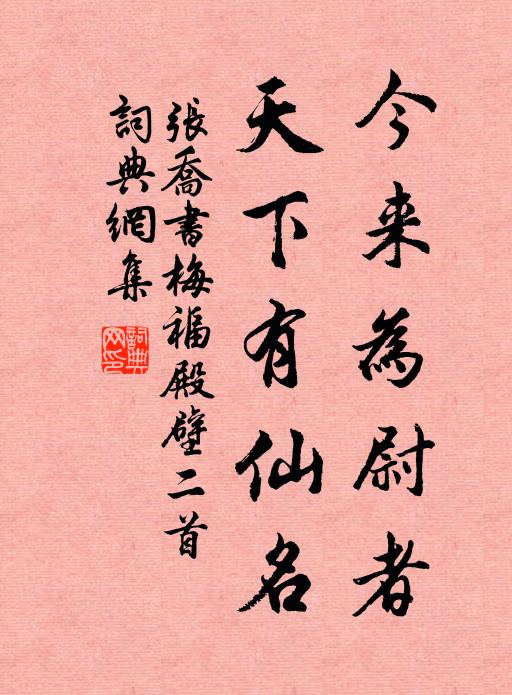 今来為尉者
天下有仙名
張喬書梅福殿壁二首
詞典網集
詞典网印